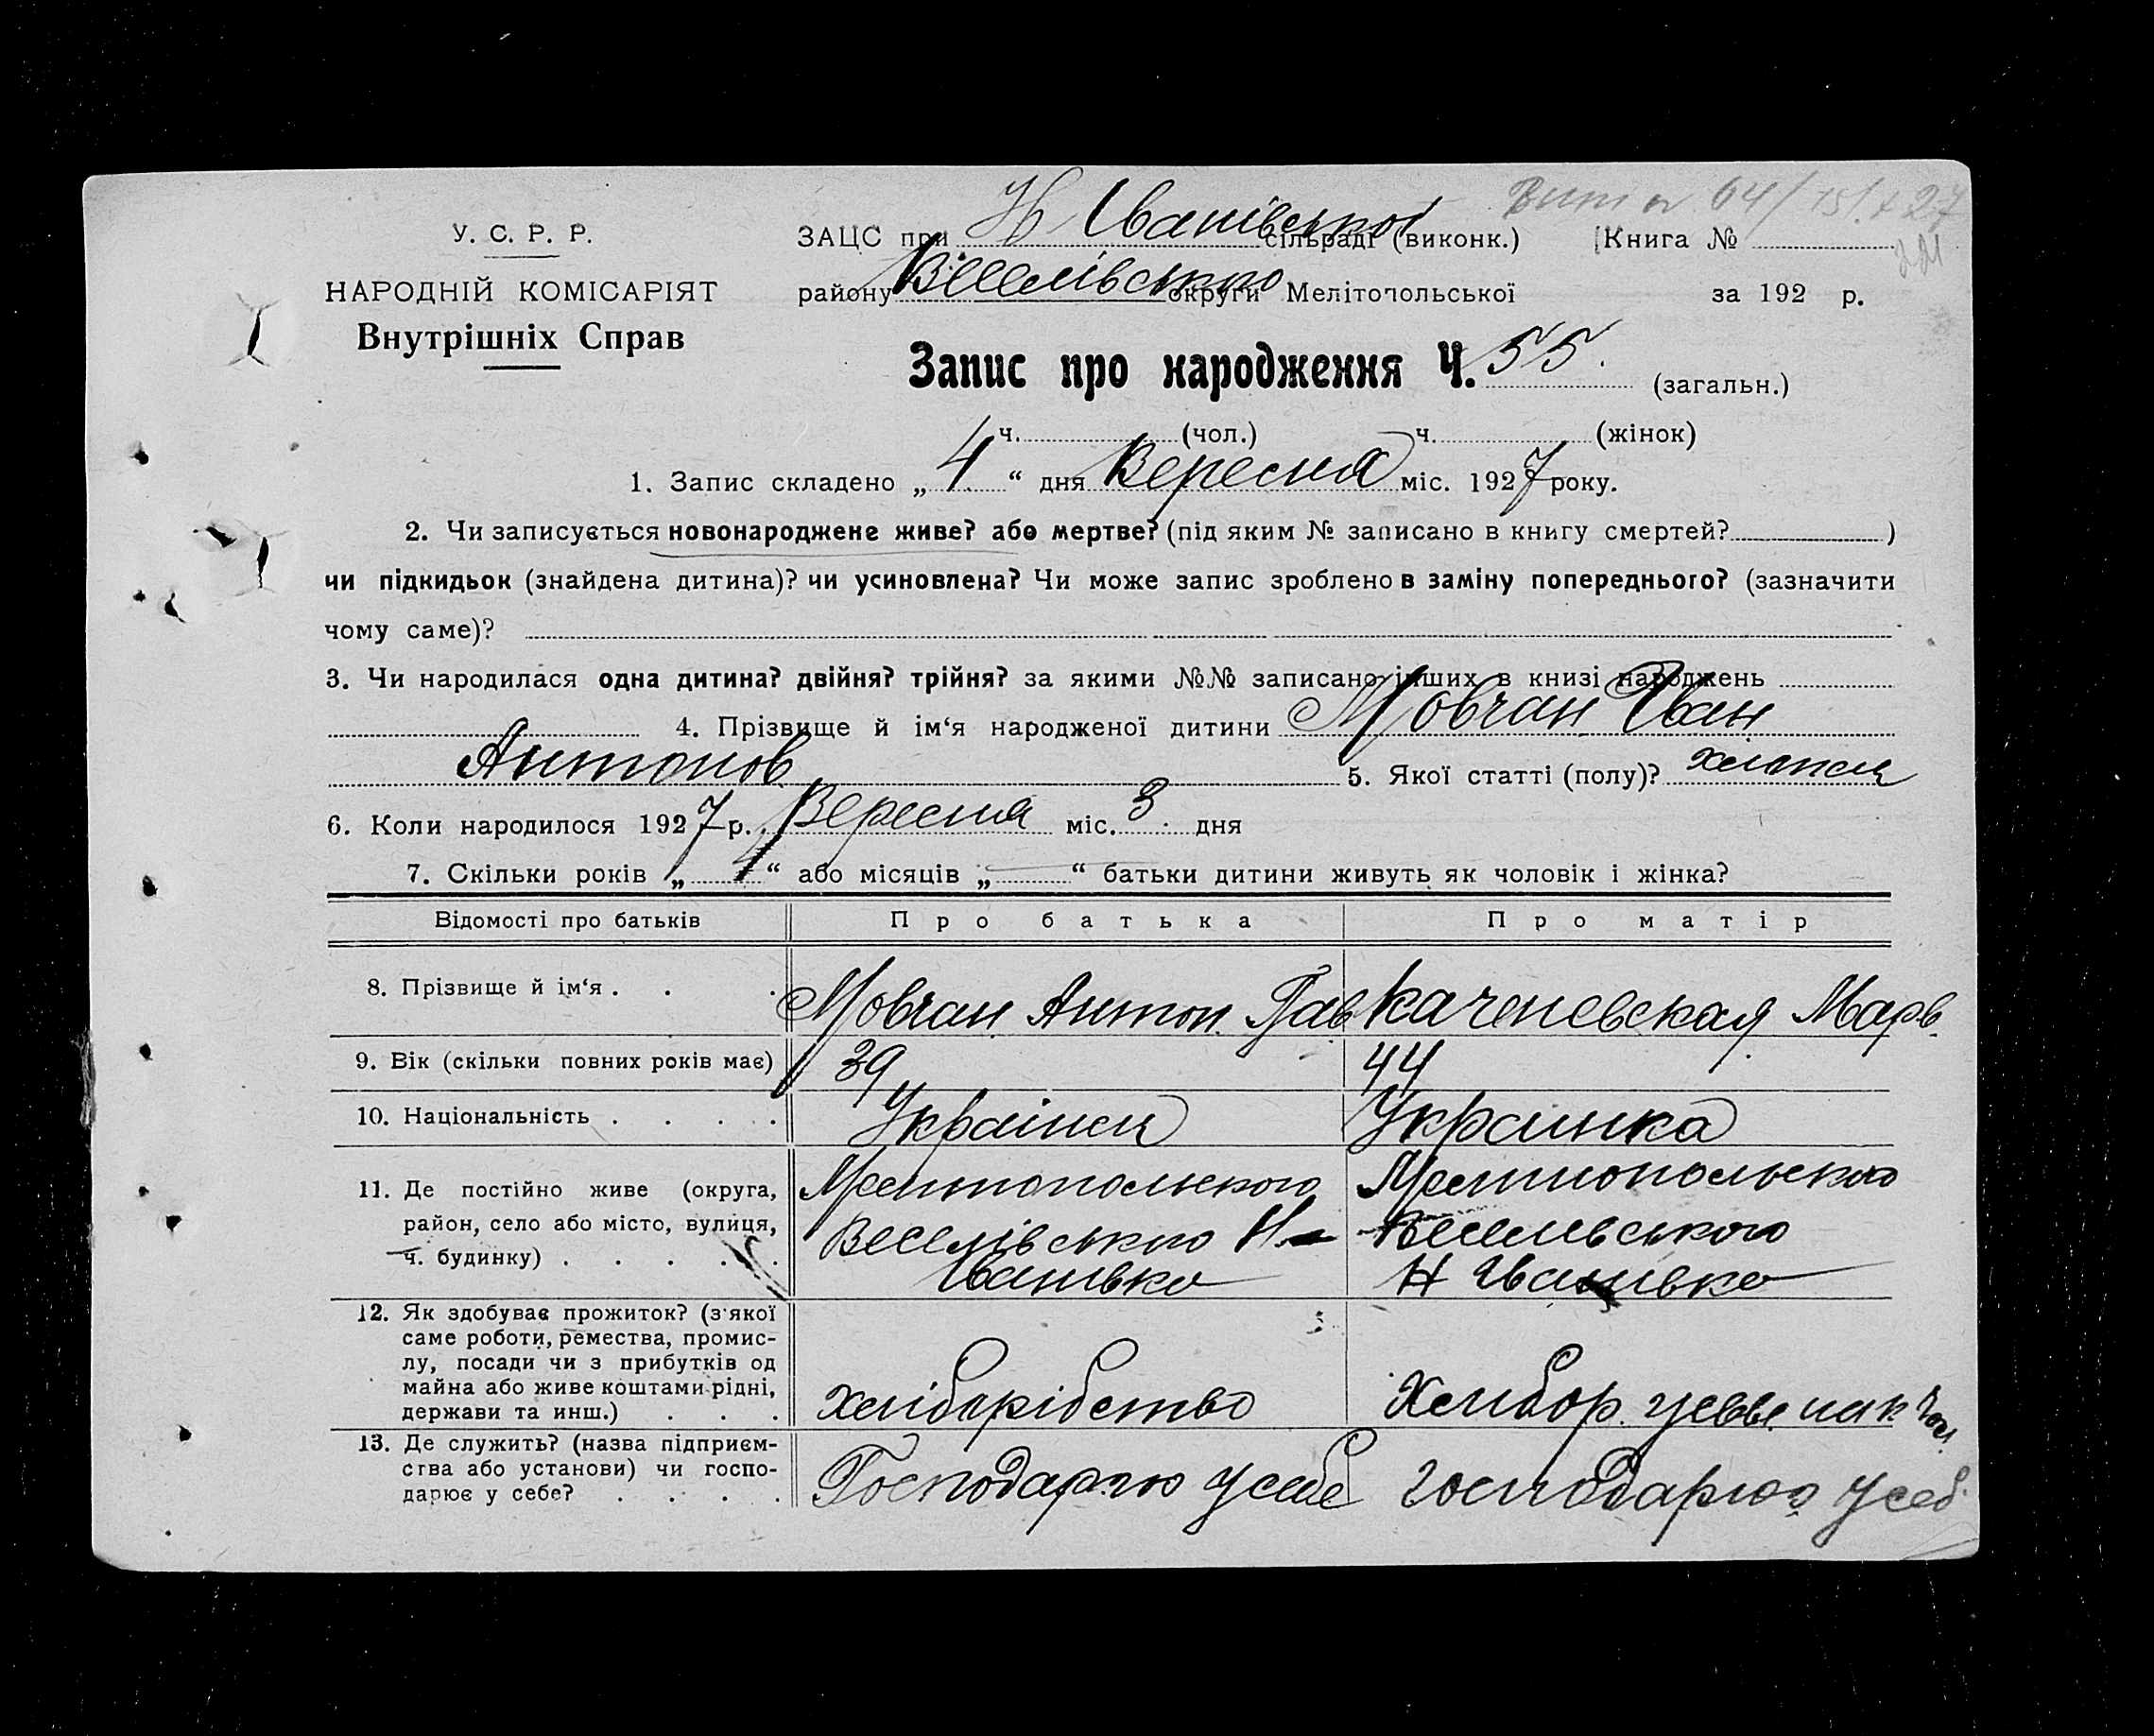 Витяг 64/151.X 27
У. С. Р. Р.
НАРОДНІЙ КОМІСАРІЯТ
Внутрішніх Справ
ЗАЦС при Н Іванівської сільраді (виконк.) Книга №
221
району Веселівсько округи Мелітопольської за 192 р.
Запис про народження Ч. 55. (загальн.)
ч. (чол.) ч. (жінок)
1. Запис складено „ 4 “ дня Вересня міс. 1927 року.
2. Чи записується новонароджене живе? або мертве? (під яким № записано в книгу смертей? )
чи підкидьок (знайдена дитина)? чи усиновлена? Чи може запис зроблено в заміну попереднього? (зазначити
чому саме)?
3. Чи народилася одна дитина? двійня? трійня? за якими №№ записано інших в книзі народжень
4. Прізвище й ім‘я народженої дитини Мовчан Іван
Антонов 5. Якої статті (полу)? хлопець
6. Коли народилося 1927 р. Вересня міс. 3 дня
7. Скільки років „ 4 “ або місяців „ — “ батьки дитини живуть як чоловік і жінка?
Відомості про батьків Про батька Про матір
8. Прізвище й ім‘я . . . Мовчан Антон. Гав Каченевская Марв.
9. Вік (скільки повних років має) 39 44
10. Національність . . . . Українец Украинка
11. Де постійно живе (округа, Мелітопольского Мелитопольского
район, село або місто, вулиця, Веселівського Н- Веселивського
ч. будинку) . . . . . Іванівка Н Іванівка
12. Як здобуває прожиток? (з'якої
саме роботи, ремества, промис-
лу, посади чи з прибутків од
майна або живе коштами рідні, хліборібство Хлибор.
держави та инш.) . . .
13. Де служить? (назва підприєм-
ства або установи) чи госпо- Господарюю у себе господарюю у себ.
дарює у себе? . . . .